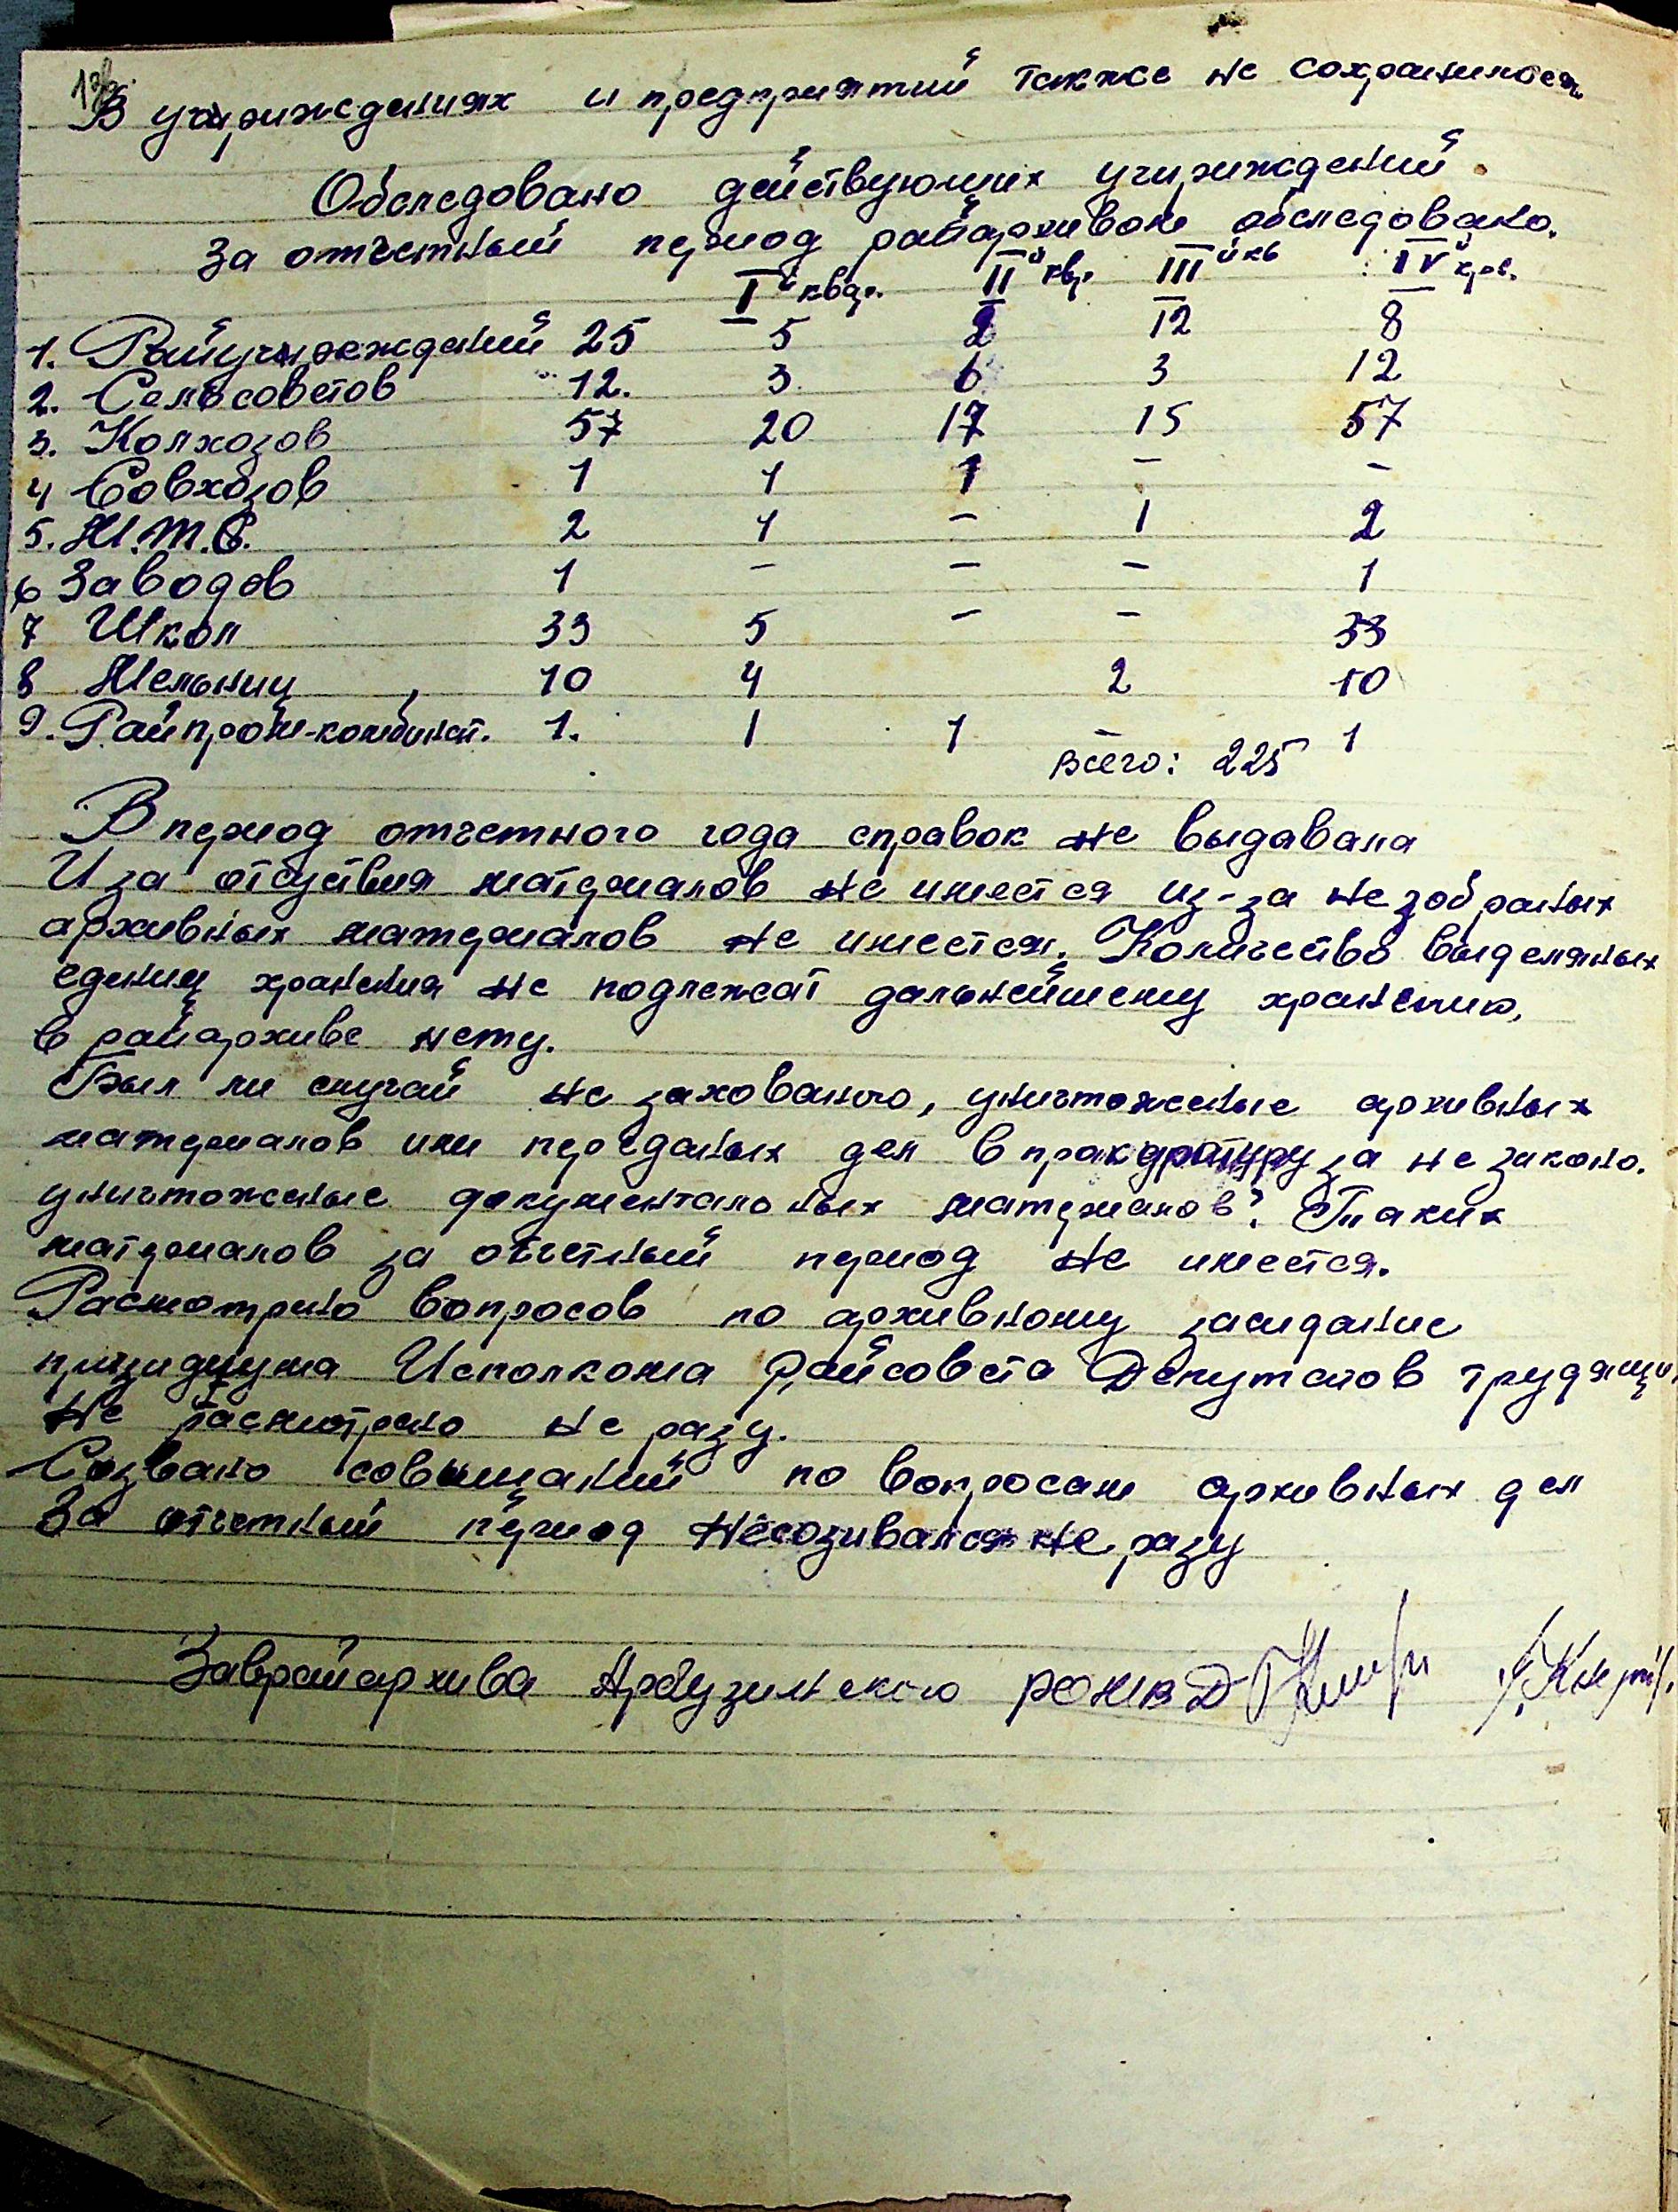 В учириждениях и предприятий также не сохранилося
Обследовано действующих учириждений.
За отчетный период райархивом обследовано.
I й квар. II й квр III й кв IV й крв.
1. Райучиреждений 25 5 2 12 8
2. Сельсоветов 12. 3. 6 3 12
3. Колхозов 57 20 17 15 57
4 Совхозов 1 1 1 – –
5. М.Т.С. 2 1 – 1 2
6 Заводов 1 – – – 1
7 Школ 33 5 – – 33
8 Мельниц 10 4 2 10
9. Райпром-комбинат. 1. 1 1 – 1
Всего: 225
В период отчетного года справок не выдавала
И за отсуствия материалов не имеется из-за не зобраных
архивных материалов не имеется. Количество выделяных
едениц хранения не подлежат дальнейшему хранению,
в райархиве нету.
Был ли случай не захованого, уничтожение архивных
материалов или переданых дел в пракуратуру за не законо.
уничтожение документальных материалов? Таких
материалов за отчетный период не имеется.
Расмотрено вопросов по архивному заседание
призидиума Исполкома Райсовета Депутатов трудящи
не расмотрено не разу.
Созвано совищаний по вопросам архивных дел
За отчетный период несозивался не разу
Заврайархива Арбузинского РОМВД